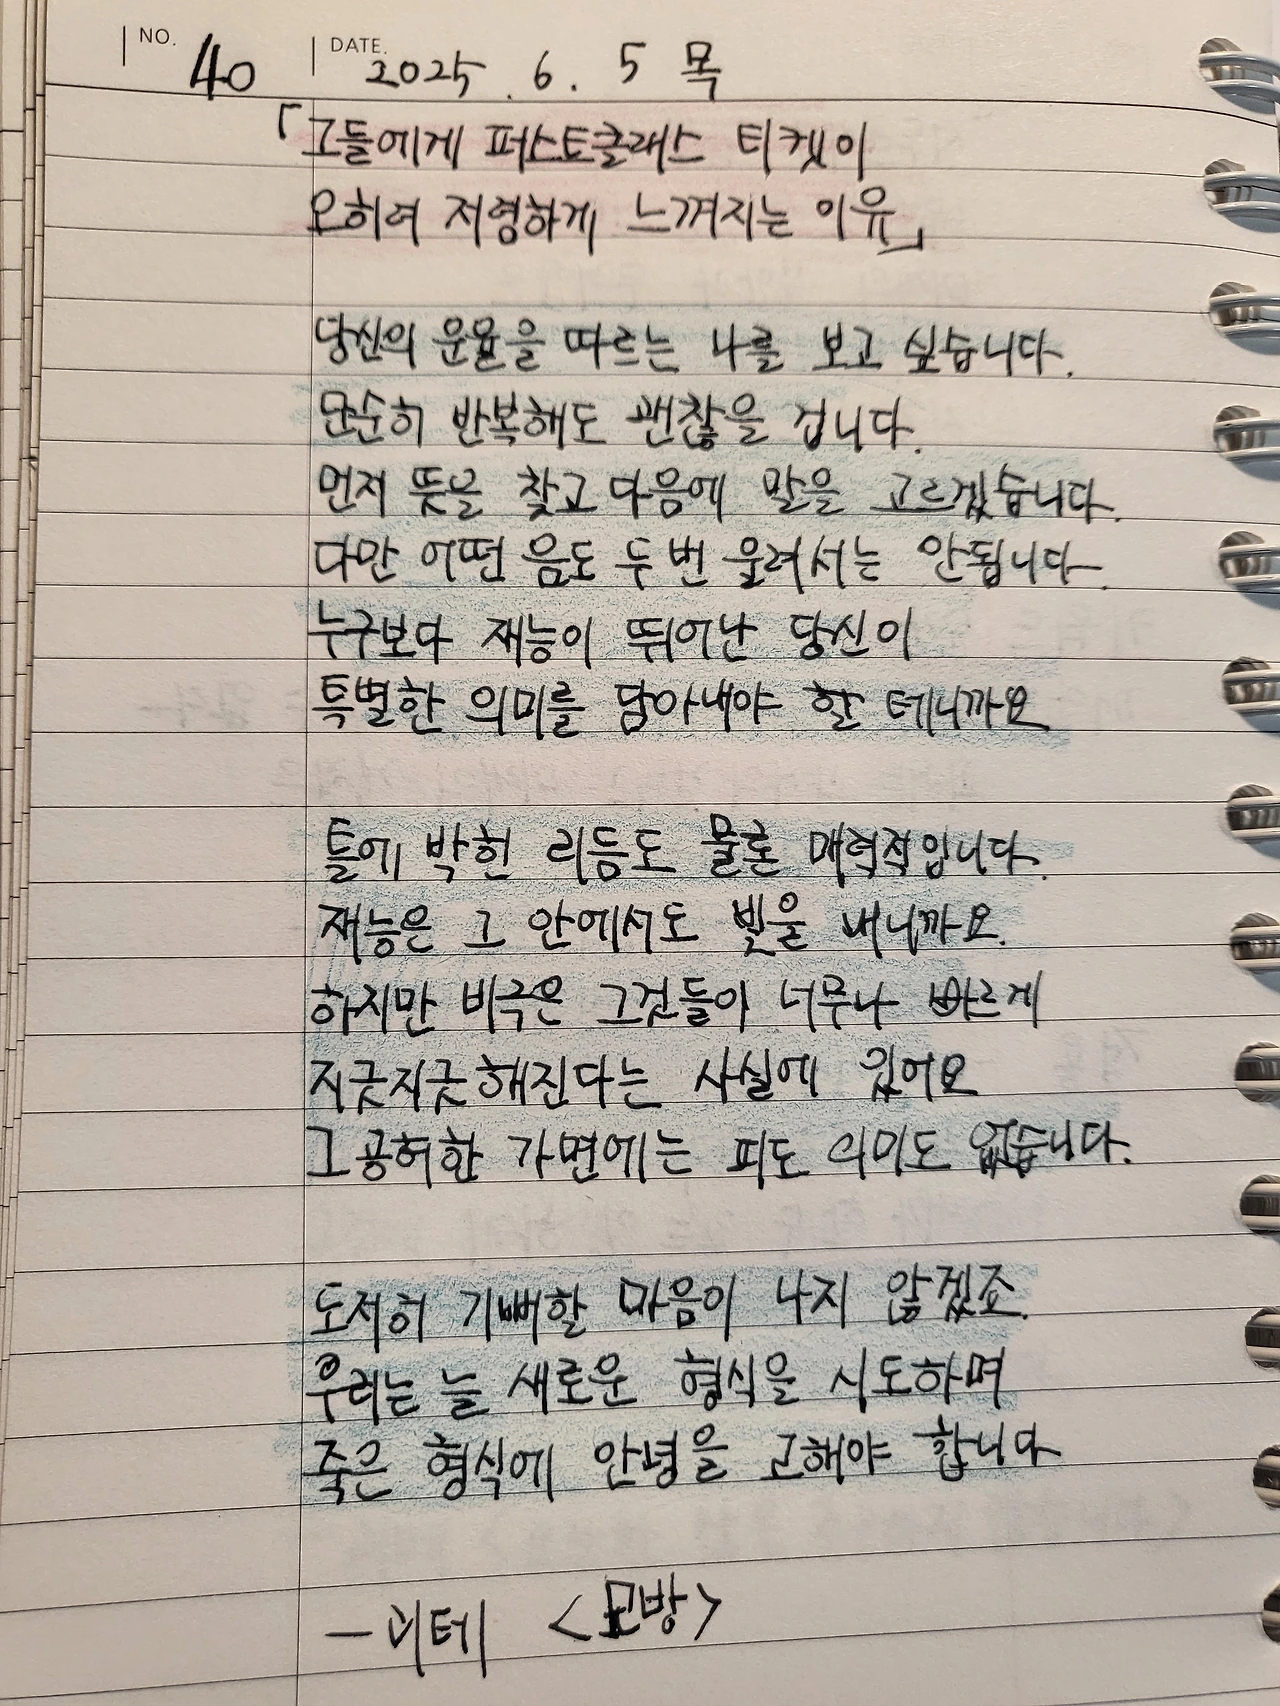 NO. 40 DATE. 2025. 6. 5 목
「그들에게 퍼스트클래스 티켓이
오히려 저렴하게 느껴지는 이유」
당신의 운율을 따르는 나를 보고 싶습니다.
단순히 반복해도 괜찮을 겁니다.
먼저 뜻을 찾고 다음에 말을 고르겠습니다.
다만 어떤 음도 두 번 울려서는 안됩니다.
누구보다 재능이 뛰어난 당신이
특별한 의미를 담아내야 할 테니까요
틀에 박힌 리듬도 물론 매력적입니다.
재능은 그 안에서도 빛을 내니까요.
하지만 비극은 그것들이 너무나 빠르게
지긋지긋해진다는 사실에 있어요
그 공허한 가면에는 피도 의미도 없습니다.
도저히 기뻐할 마음이 나지 않겠죠.
우리는 늘 새로운 형식을 시도하며
죽은 형식에 안녕을 고해야 합니다
- 괴테 <모방>